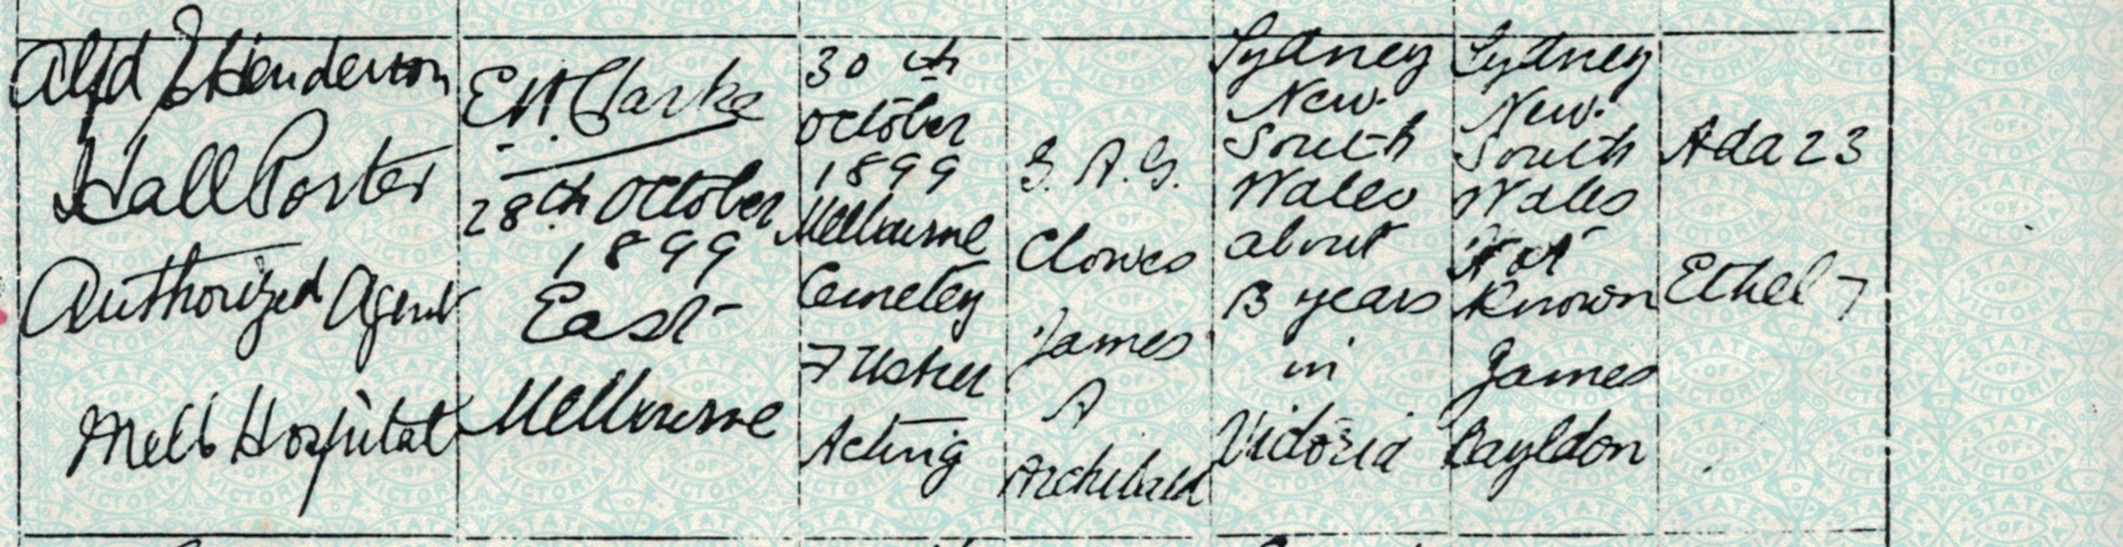 Alfd J Henderson
Hall Porter
Authorized Agent
Melb Hospital
E H Clarke
28th October
1899
East
Melbourne
30 th
October
1899
Melbourne
Cemetery
Acting
G. A. G.
Clowes
James
A
Archibald
Sydney
New
South
Wales
about
13 years
in
Victoria
Sydney
New
South
Wales
Not
Known
James
Bayldon
Ada 23
Ethel 7